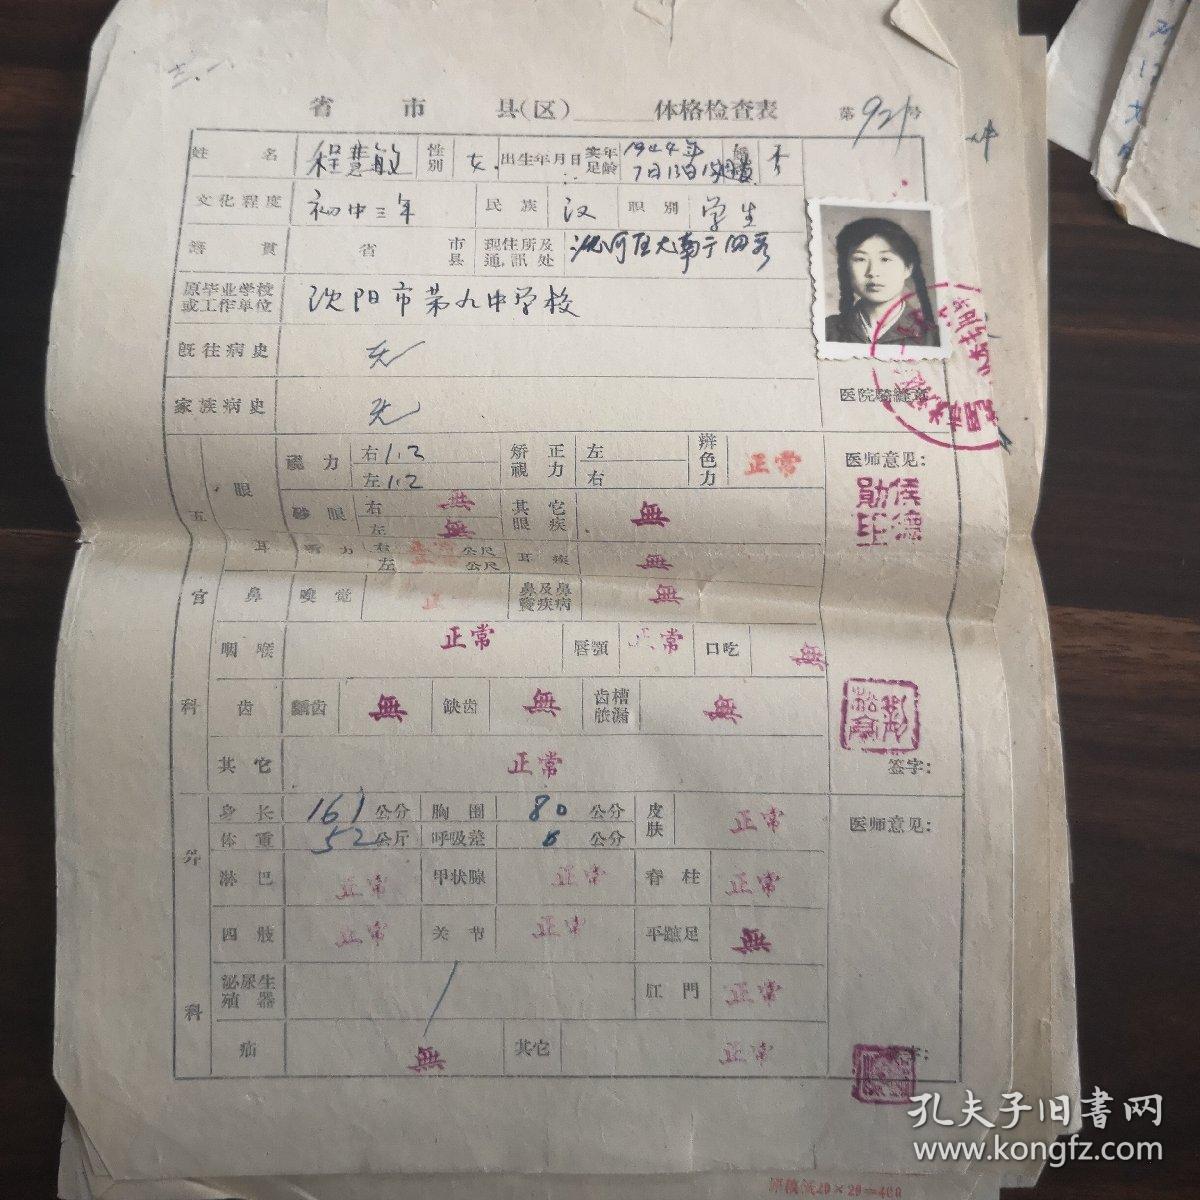 省 市 县(区) 体格检查表 第921号
姓名 程慧敏 性别 女 出生年月日 实足年龄 1944年7月13日
文化程度 初中三年 民族 汉 职别 学生
籍贯 省 市县 现住所及通訊处 沈河区大南
原毕业学校或工作单位 沈阳市第九中学校
既往病史 无
家族病史 无
医院騎縫章
五官科
眼 視力 右1.2 左1.2 矫正視力 左 右 辨色力 正常 医师意见:
砂眼 右 無 左 無 其它眼疾 無
耳 听力 右 正常 公尺 左 公尺 耳疾 無
鼻 嗅觉 正 鼻及鼻竇疾病 無
咽喉 正常 唇顎 正常 口吃 無
齿 齲齿 無 缺齿 無 齿槽脓漏 無
其它 正常 签字:
外科
身长 161 公分 胸围 80 公分 皮肤 正常 医师意见:
体重 52 公斤 呼吸差 公分
淋巴 正常 甲状腺 正常 脊柱 正常
四肢 正常 关节 正常 平蹠足 無
泌尿生殖器 / 肛門 正常
疝 無 其它 正常 签字:
孔夫子旧书网
www.kongfz.com
20×20=400